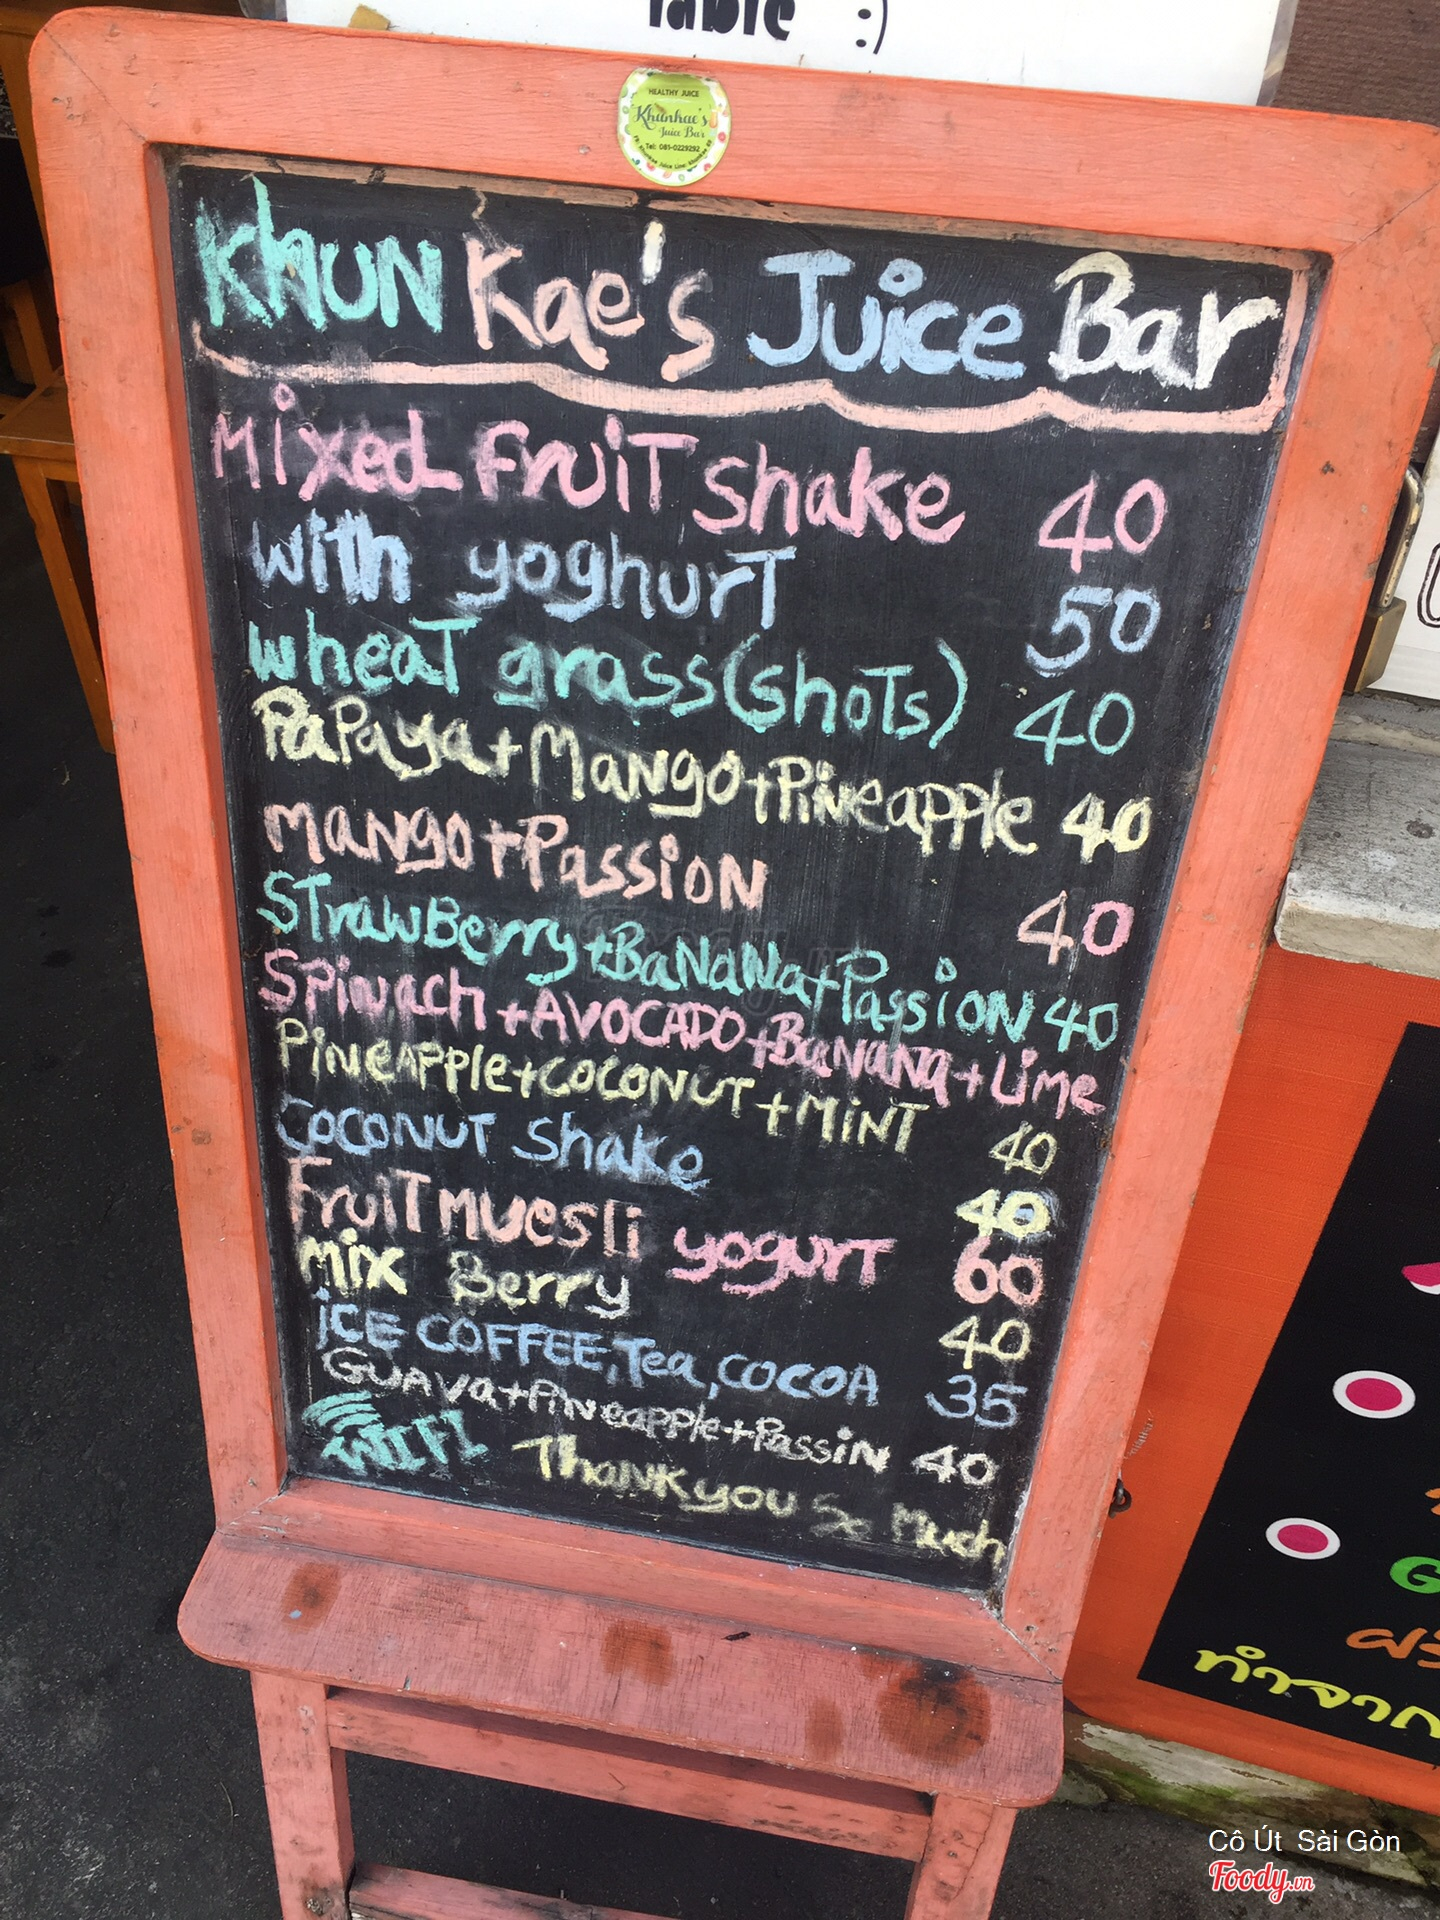 Table :)
HEALTHY JUICE
Khunkae's
Juice Bar
Tel: 081-0229292
KHUN Kae's Juice Bar
Mixed Fruit shake 40
with yoghurt 50
wheat grass(shots) 40
Papaya+Mango+Pineapple 40
mango+Passion 40
Strawberry+Banana+Passion 40
Spinach+AVOCADO+Banana+Lime
Pineapple+coconut+Mint 40
coconut shake 40
Fruit Muesli yogurt 60
Mix Berry 40
iCE COFFEE,Tea,COCOA 35
Guava+Pineapple+Passin 40
WIFI Thank you So Much
G
ทำจาก
Cô Út Sài Gòn
Foody.vn